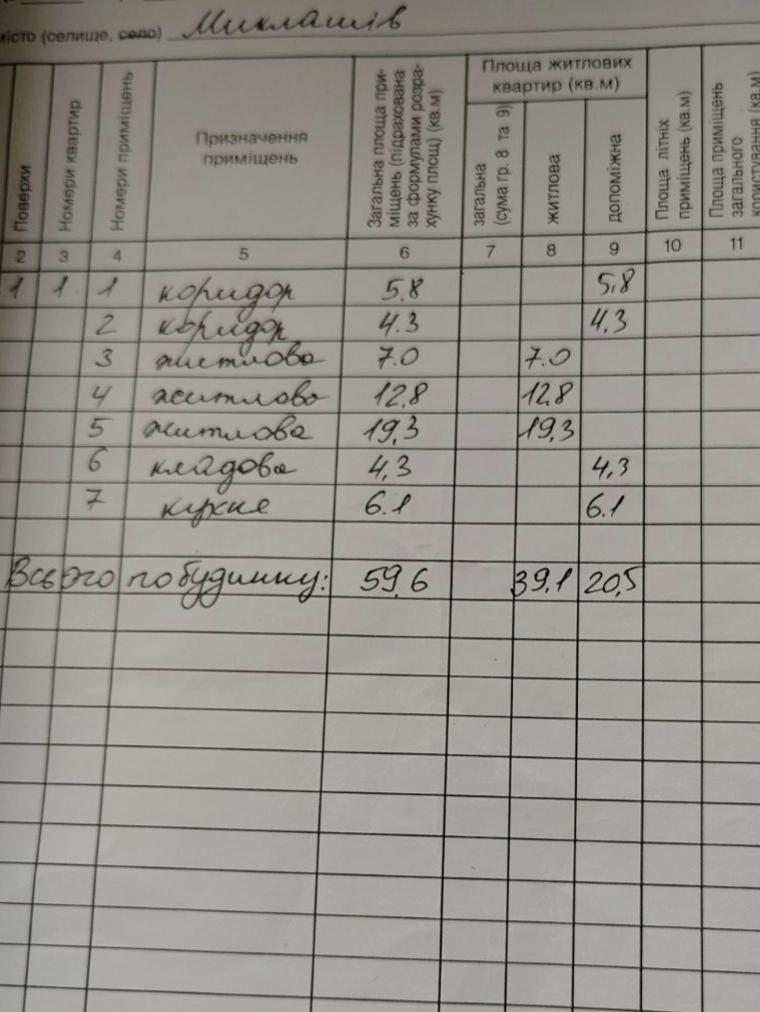 місто (селище, село) Миклашів
Поверхи
Номери квартир
Номери приміщень
Призначення
приміщень
Загальна площа при-
міщень (підрахована
за формулами розра-
хунку площ) (кв.м)
Площа житлових
квартир (кв.м)
загальна
(сума гр. 8 та 9)
житлова
допоміжна
Площа літніх
приміщень (кв.м)
Площа приміщень
загального
користування (кв.м)
2 3 4 5 6 7 8 9 10 11
1 1 1 коридор 5,8 5,8
2 коридор 4.3 4.3
3 житлова 7.0 7.0
4 житлова 12,8 12,8
5 житлова 19,3 19,3
6 кладова 4,3 4,3
7 кухня 6.1 6.1
Всього по будинку: 59,6 39,1 20,5